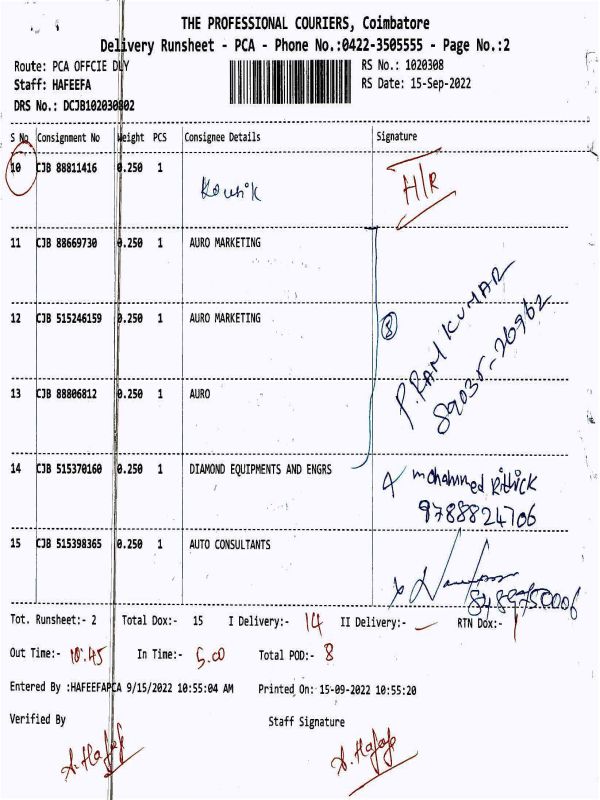 THE PROFESSIONAL COURIERS, Coimbatore
Delivery Runsheet - PCA - Phone No.:0422-3505555 - Page No.:2
Route: PCA OFFCIE DLY RS No.: 1020308
Staff: HAFEEFA RS Date: 15-Sep-2022
DRS No.: DCJB102030802
S No Consignment No Weight PCS Consignee Details Signature
10 CJB 88811416 0.250 1 Kousik H/R
11 CJB 88669730 0.250 1 AURO MARKETING
12 CJB 515246159 0.250 1 AURO MARKETING
8
P. RAM KUMAR
89035-26962
13 CJB 88806812 0.250 1 AURO
14 CJB 515370160 0.250 1 DIAMOND EQUIPMENTS AND ENGRS
mohammed Rithick
9788824706
15 CJB 515398365 0.250 1 AUTO CONSULTANTS
Tot. Runsheet:- 2 Total Dox:- 15 I Delivery:- 14 II Delivery:- – RTN Dox:- 1
Out Time:- 10.45 In Time:- 5.00 Total POD:- 8
Entered By :HAFEEFAPCA 9/15/2022 10:55:04 AM Printed On: 15-09-2022 10:55:20
Verified By Staff Signature